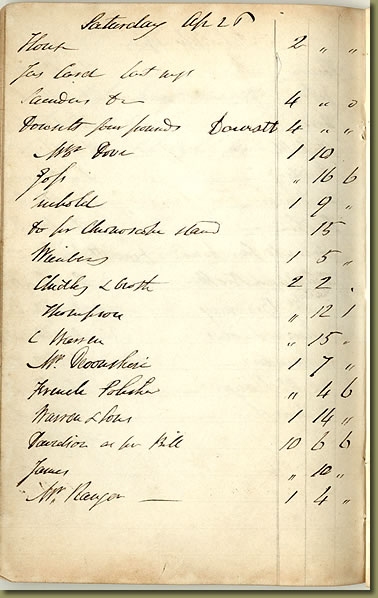 Saturday Ap 26
House 2 " "
Jas Card last wgs
Saunders Do 4 " 0
Dowsett four pounds Dowsett 4 " "
Mr Dove 1 10
Joss " 16 6
1 9 "
Do for Chronoscope stand 15
1 5 "
Chidley & Croth 2 2 .
Thompson " 12 1
C Warren " 15 "
Mr Devonshire 1 7 "
French Polisher " 4 6
Warren & Sons 1 14 "
Davidson as per Bill 10 6 6
James " 10 "
Mr Ranger — 1 4 "